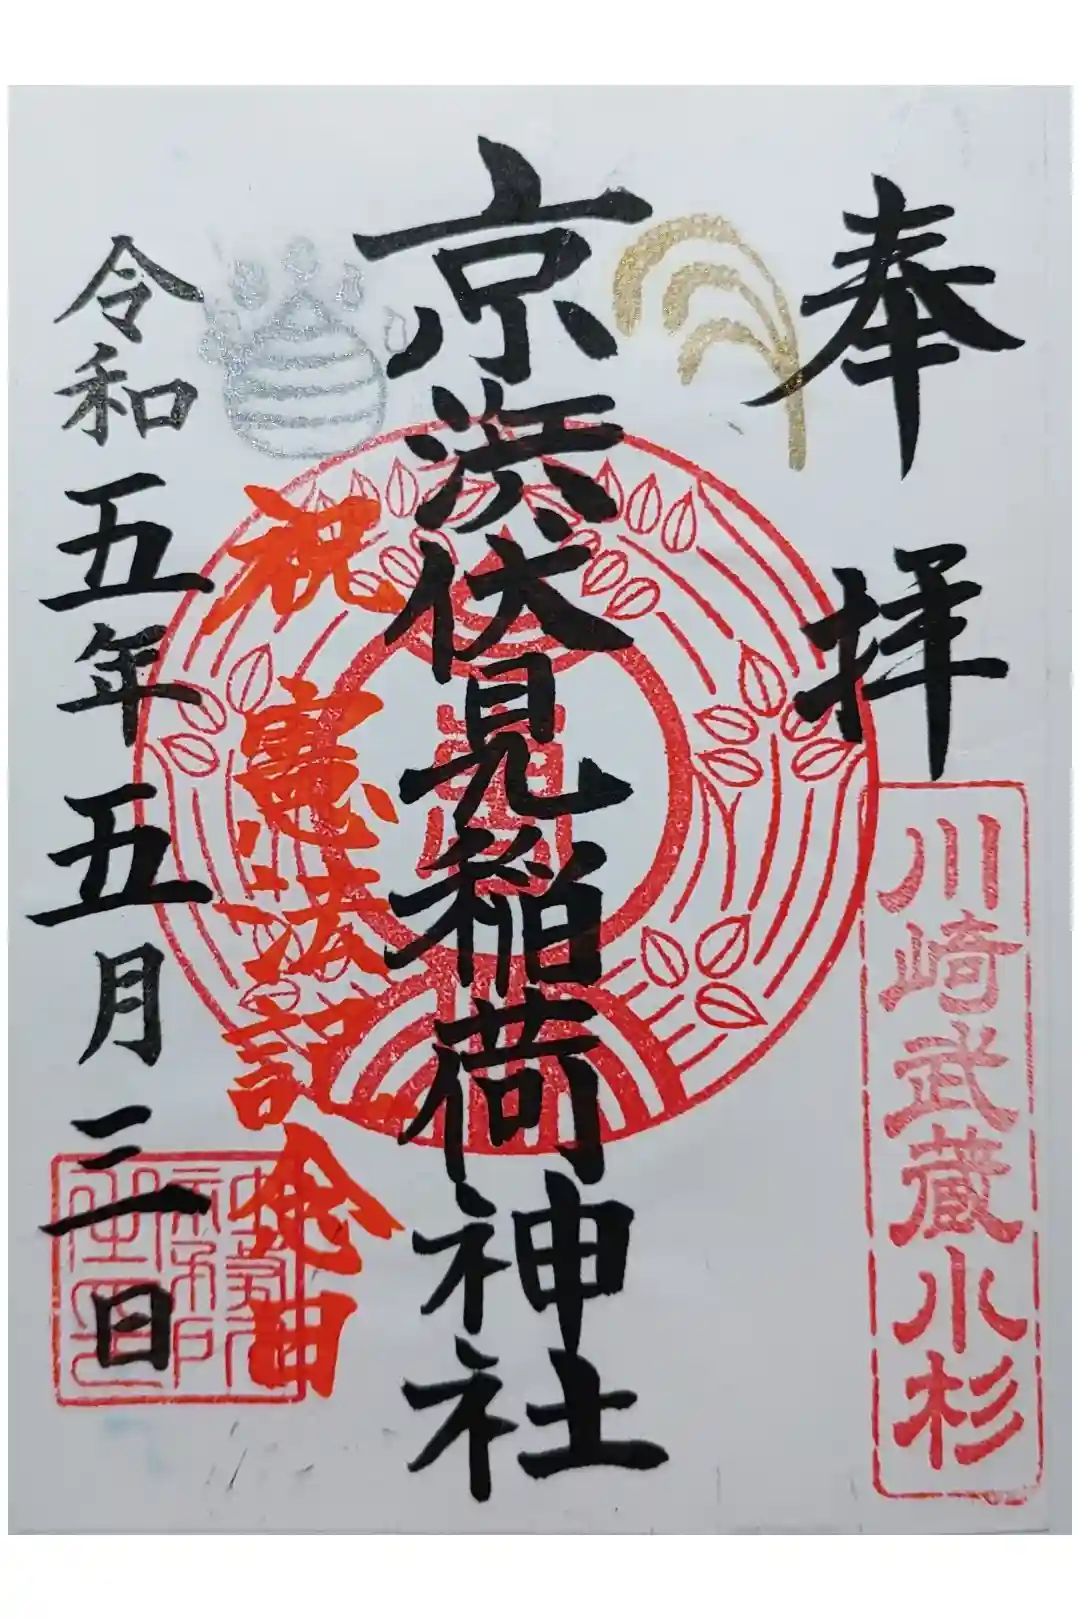 奉拝
川崎武蔵小杉
京濱伏見稲荷神社
祝憲法記念日
令和五年五月三日